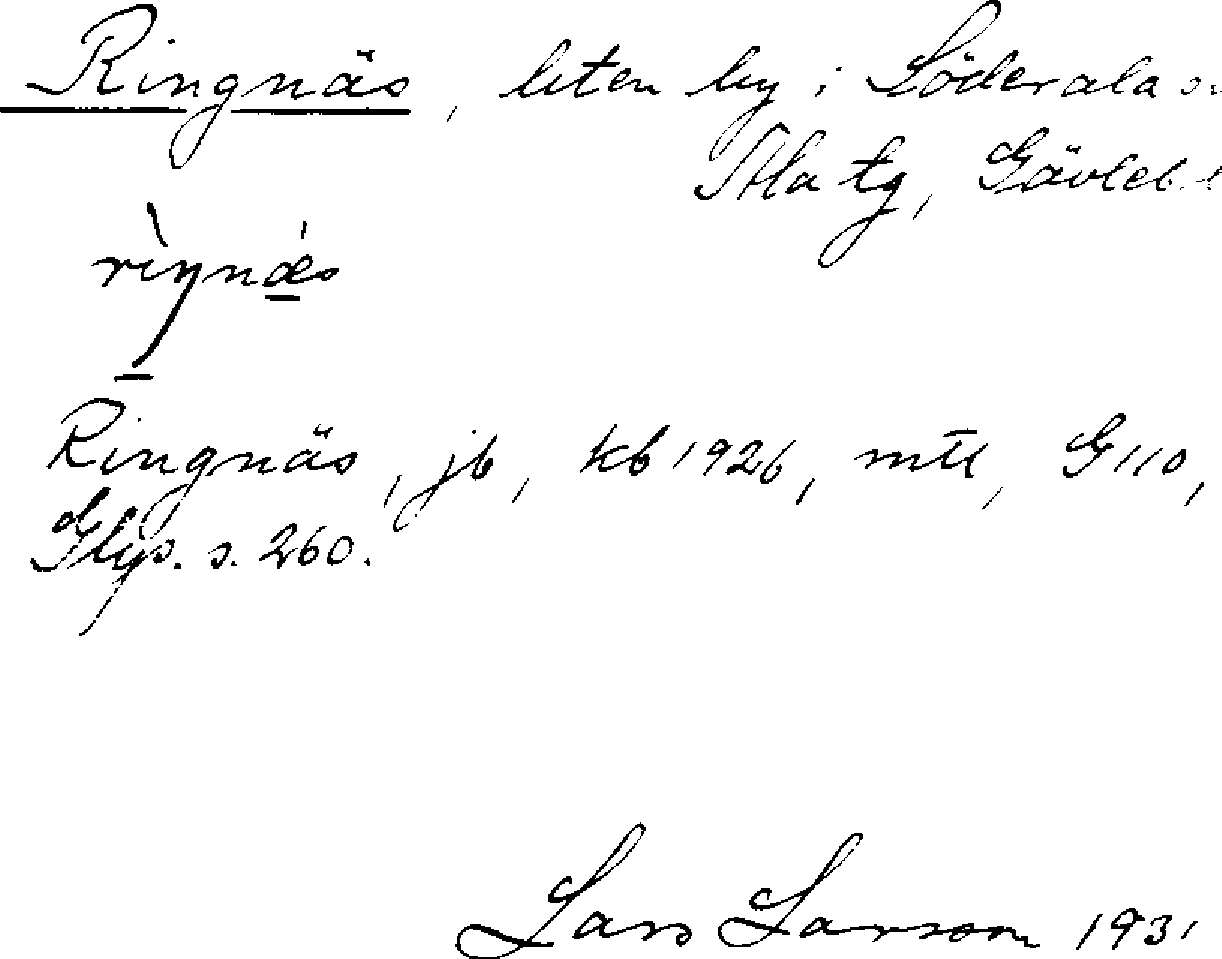 Ringnäs, liten by i Söderala sn
Ala tg, Gävleb. l
rìŋnǽs
Ringnäs, jb, kb 1926, mtl, G110,
Glys. s. 260.
Lars Larsson 1931